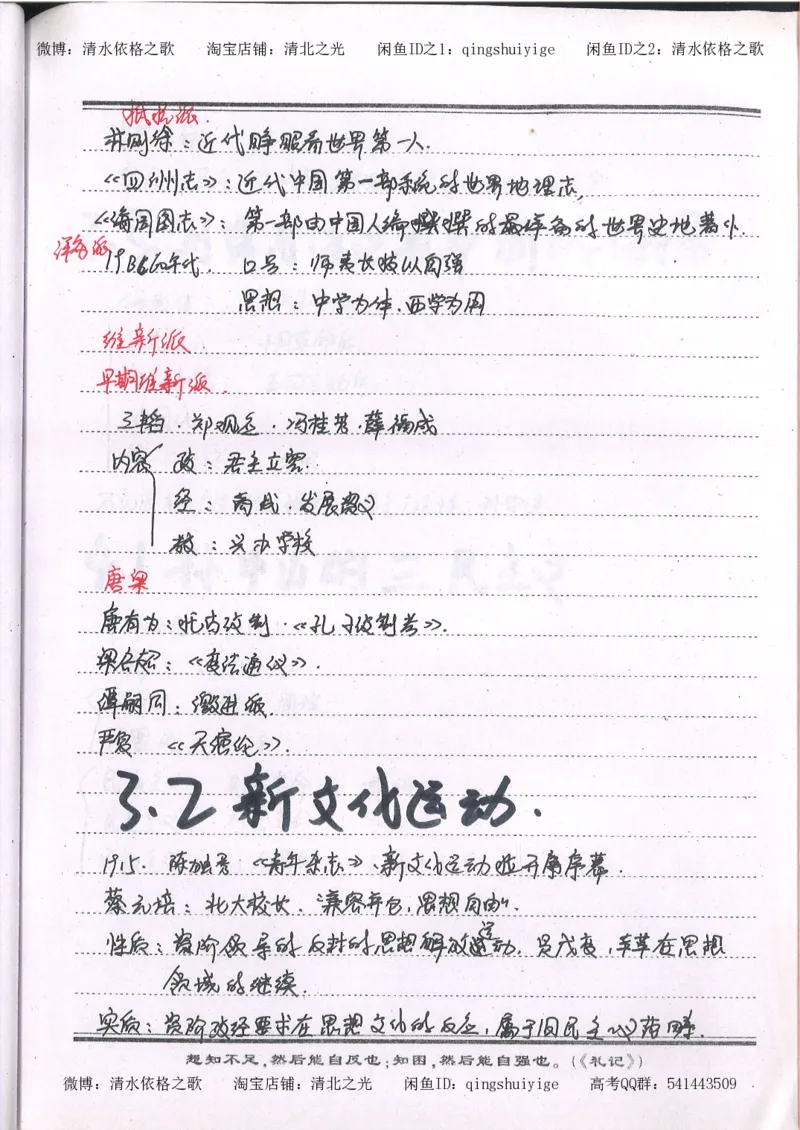 微博：清水依格之歌 淘宝店铺：清北之光 闲鱼ID之1：qingshuiyige 闲鱼ID之2：清水依格之歌
抵抗派.
林则徐：近代睁眼看世界第一人.
《四州志》：近代中国第一部系统的世界地理志,
《海国图志》：第一部由中国人编撰的最详备的世界史地著作.
洋务派
年代. 口号：师夷长技以自强
思想：中学为体.西学为用
维新派.
早期维新派.
王韬.郑观应.冯桂芬.薛福成
内容 政：君主立宪.
经：商战.发展资义
教：兴办学校
康梁
康有为：托古改制.《孔子改制考》.
梁启超：《变法通议》.
谭嗣同：激进派.
严复 《天演论》.
3.2 新文化运动.
1915. 陈独秀 《青年杂志》、新文化运动拉开序幕.
蔡元培：北大校长. 兼容并包,思想自由".
性质：资阶领导的反封的思想解放运动. 是戊变,辛革在思想
领域的继续.
实质：资阶政经要求在思想文化的反应, 属于旧民主义范畴.
想知不足,然后能自反也;知困,然后能自强也。(《礼记》)
微博：清水依格之歌 淘宝店铺：清北之光 闲鱼ID：qingshuiyige 高考QQ群：541443509